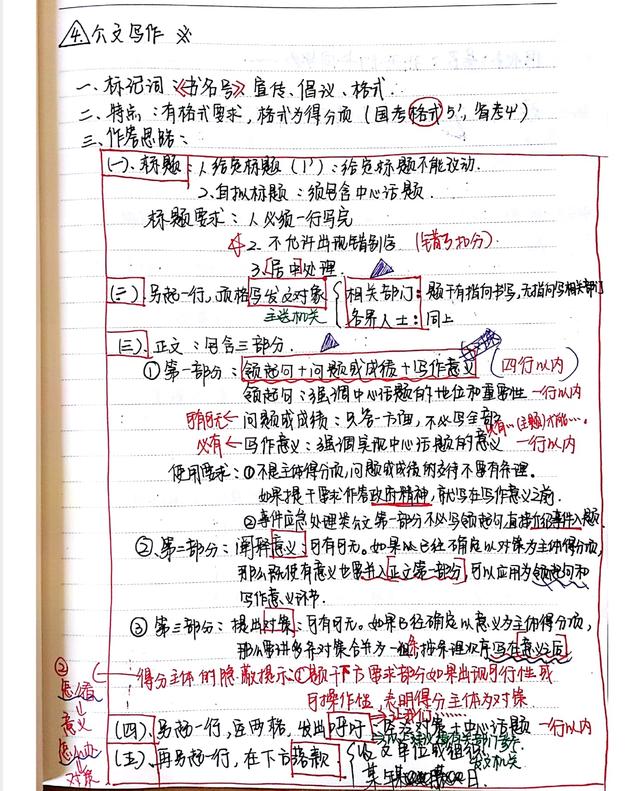 4. 公文写作 ※
一、标记词:《书名号》宣传、倡议、格式
二、特点:有格式要求,格式为得分项(国考格式5',省考4')
三、作答思路:
(一)、标题:1、给定标题(1'):给定标题不能改动.
2、自拟标题:须包含中心话题.
标题要求:1、必须一行写完
2、不允许出现错别字(错了扣分).
3、居中处理.
(二)、另起一行,顶格写发文对象 相关部门:题干有指向书写,无指向写相关部门
主送机关 各界人士:同上
(三)、正文:包含三部分.
①第一部分:领起句+问题或成绩+写作意义 (四行以内)
领起句:强调中心话题的地位和重要性 一行以内
可有可无← 问题或成绩:只答一方面,不必写全部 只有…(主题)才能….
必有← 写作意义:强调实现中心话题的意义 一行以内
使用要求:①不是主体得分项,问题或成绩的交待不要有条理。
如果题干要求作答政府精神,就写在写作意义之前.
②事件应急处理类公文第一部分不必写领起句,直接事件入题
②、第二部分:阐释意义:可有可无。如果以已经确定以对策为主体得分项,
那么既使有意义也要并入正文第一部分,可以应用为领起句和
写作意义环节.
③第三部分:提出对策:可有可无。如果已经确定以意义为主体得分项,
那么要讲多条对策合并为一组,按条理次序写在意义后
② 得分主体的隐蔽提示:①题干下方要求部分如果出现可行性或
怎么看 可操作性,表明得分主体为对策.
↓
意义 (四)、另起一行,空两格,发出呼吁→让我们……
对策+中心话题 一行以内
怎么办 (五)、再另起一行,在下方落款 发文单位或组织
发文机关
↓
对策 某年日.